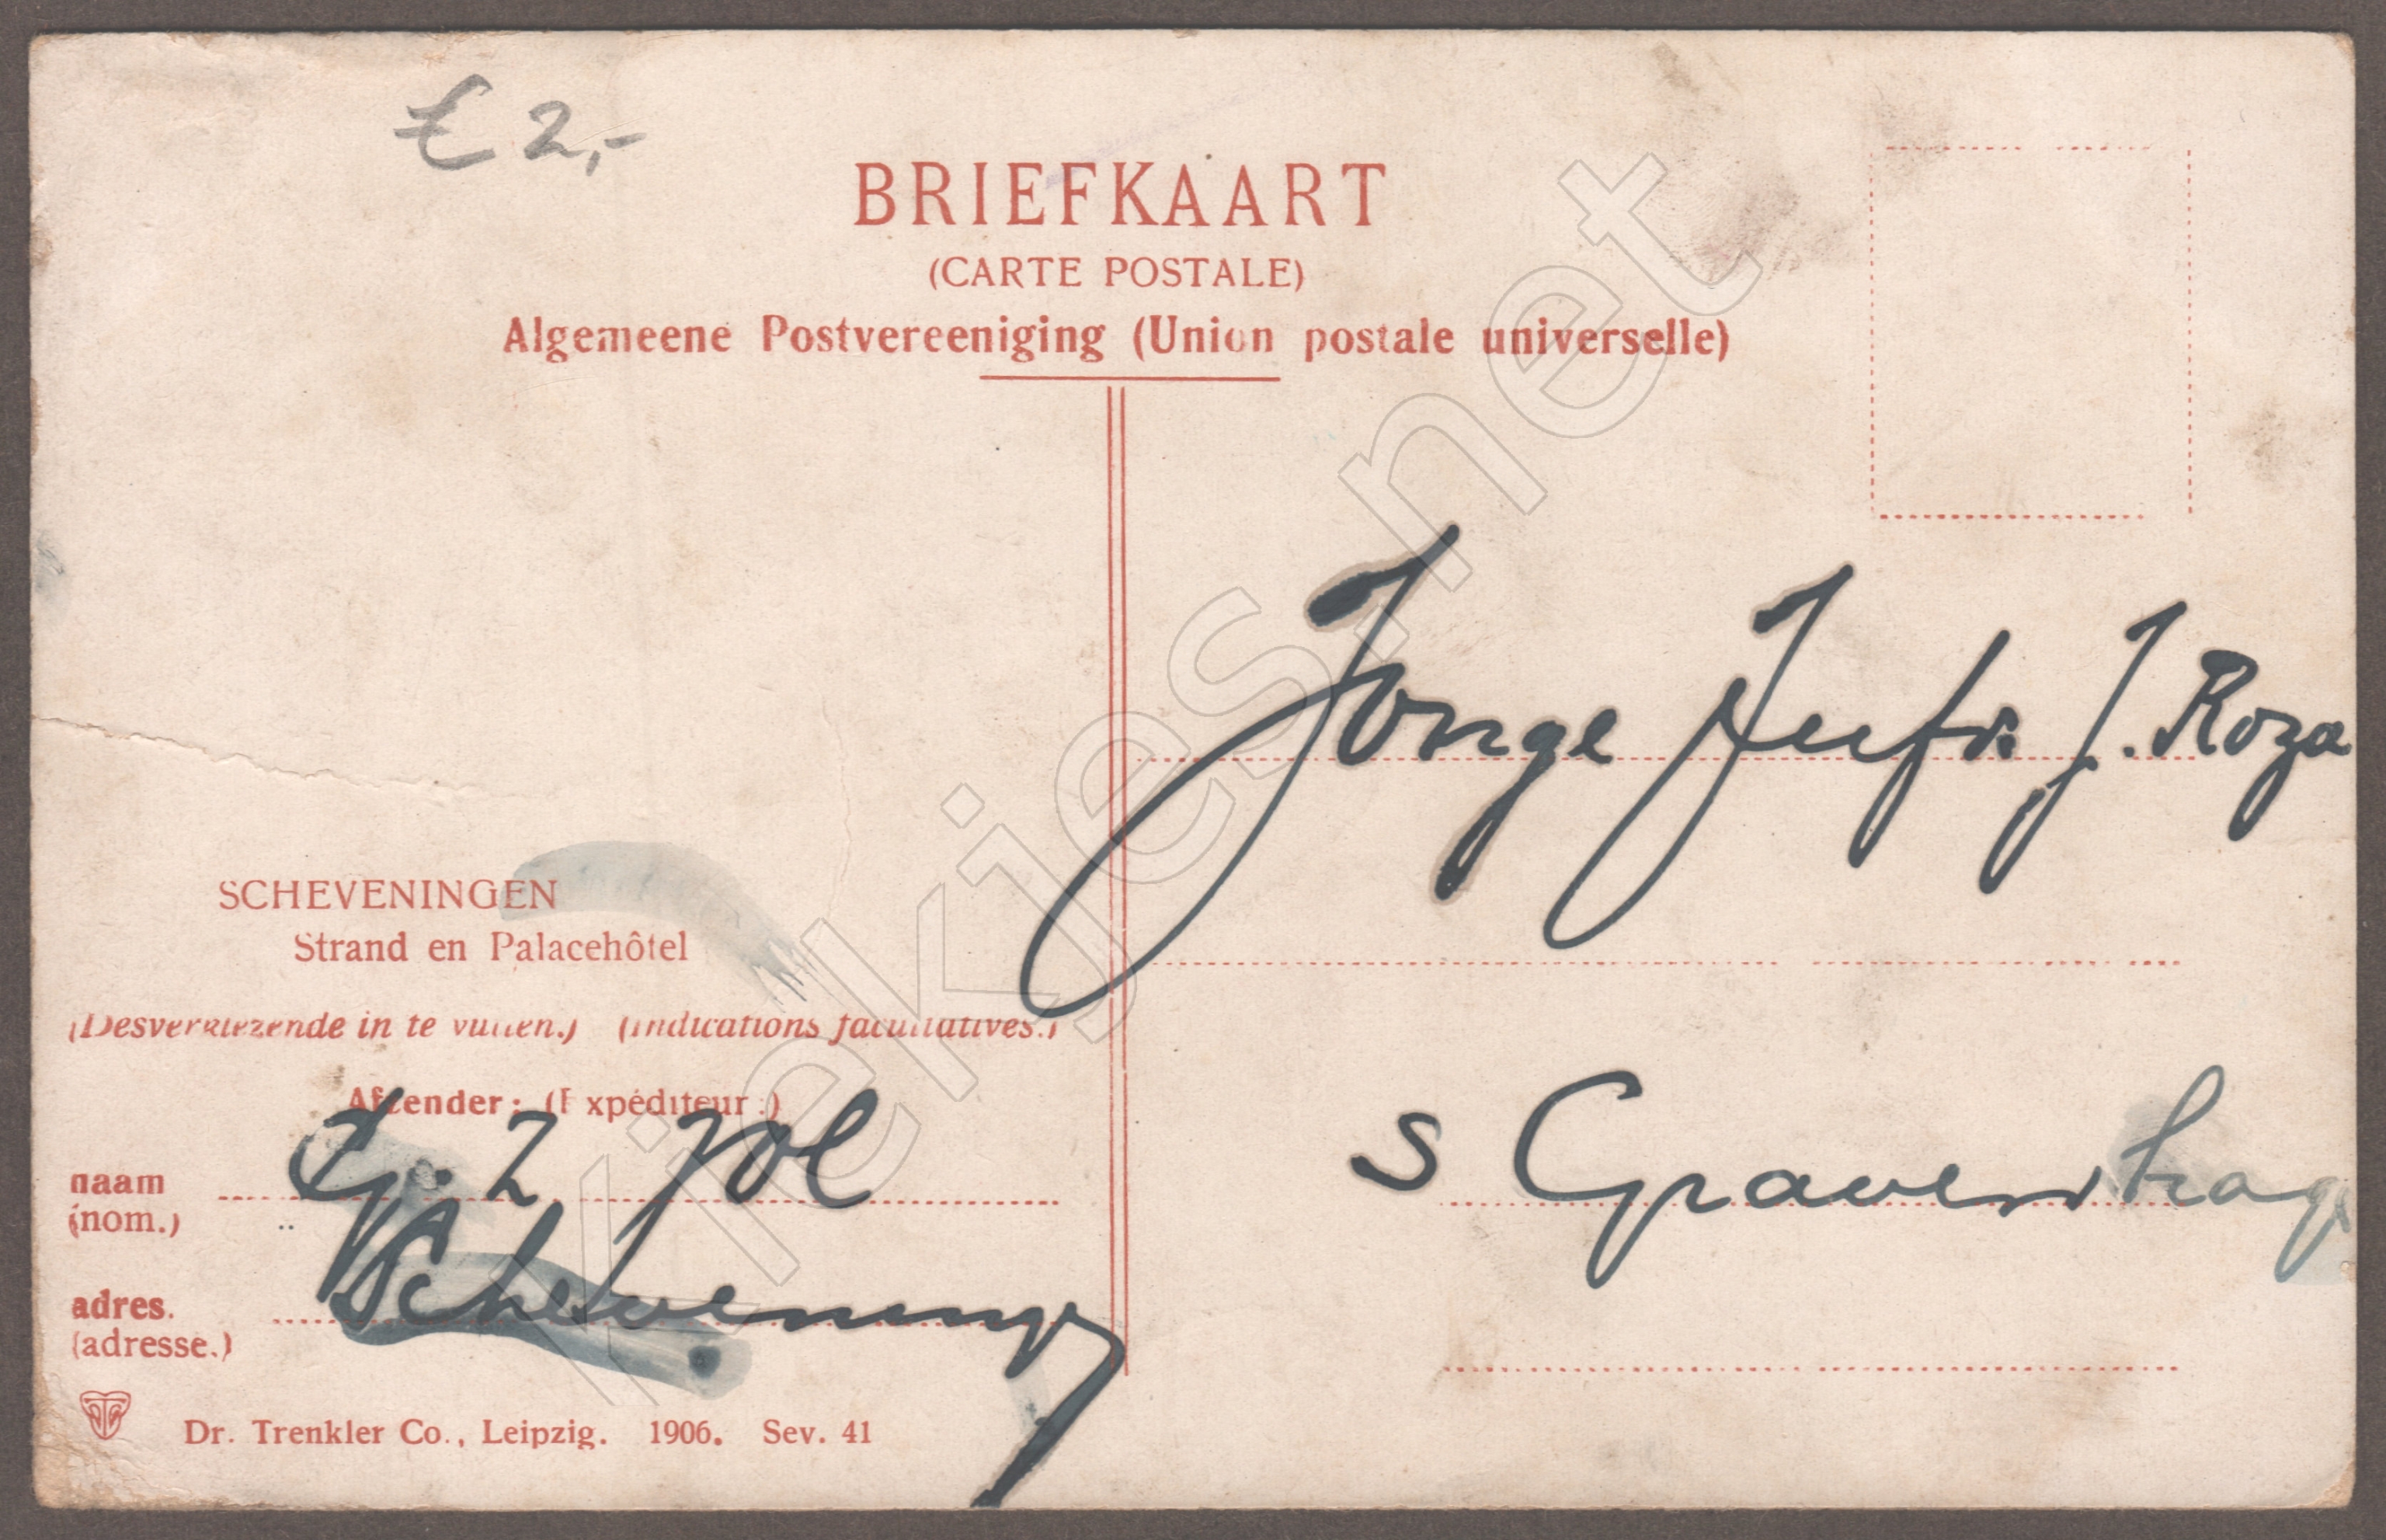 £ 2,-
BRIEFKAART
(CARTE POSTALE)
Algemeene Postvereeniging (Union postale universelle)
Jonge Jufr. J. Roza
s Gravenhage
SCHEVENINGEN
Strand en Palacehôtel
(Desverkiezende in te vullen.) (Indications facultatives.)
Afzender: (Expéditeur:)
naam
(nom.)
adres.
(adresse.)
Schevening
Dr. Trenkler Co., Leipzig. 1906. Sev. 41
kiekjes.net